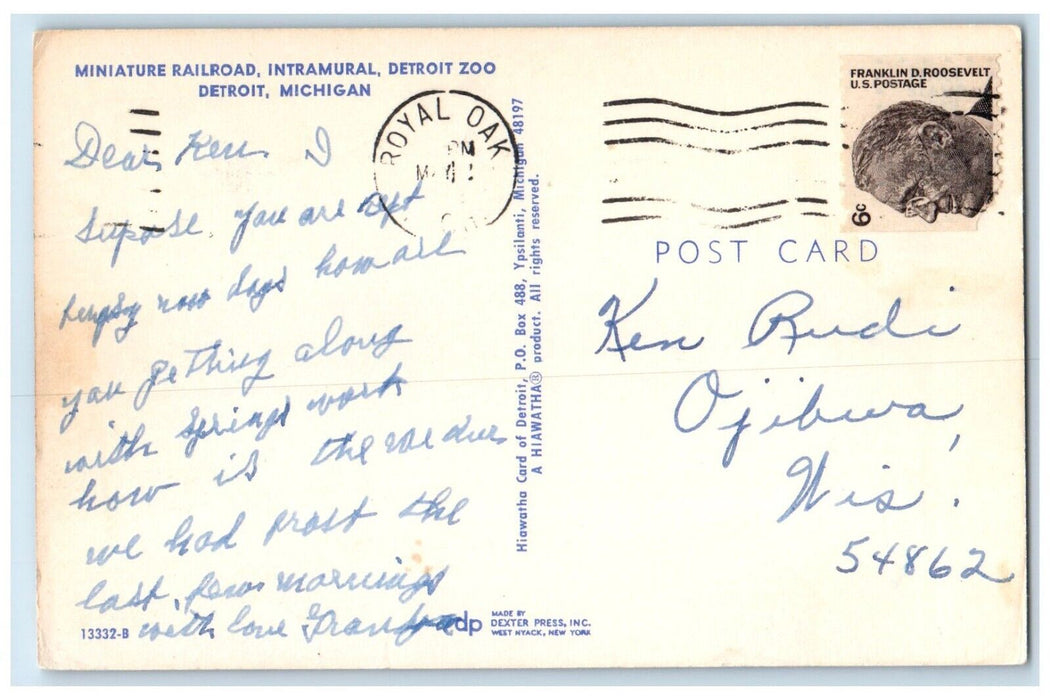 MINIATURE RAILROAD, INTRAMURAL, DETROIT ZOO
DETROIT, MICHIGAN
Dear Ken I
supose you are
now days how are
you gething along
with springs work
how is the
we had frost the
last few mornings
with love Grandpa
13332-B
ROYAL OAK
PM
Hiawatha Card of Detroit, P.O. Box 488, Ypsilanti, Michigan 48197
A HIAWATHA® product. All rights reserved.
dp
MADE BY
DEXTER PRESS, INC.
WEST NYACK, NEW YORK
FRANKLIN D. ROOSEVELT
U.S. POSTAGE
6c
POST CARD
Ken Rudi
Ojibwa,
Wis.
54862